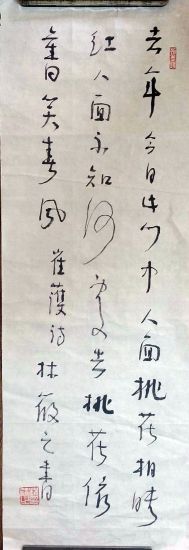 去年今日此门中人面桃花相映
红人面不知何处去桃花依
舊笑春风 崔護诗 林筱之书